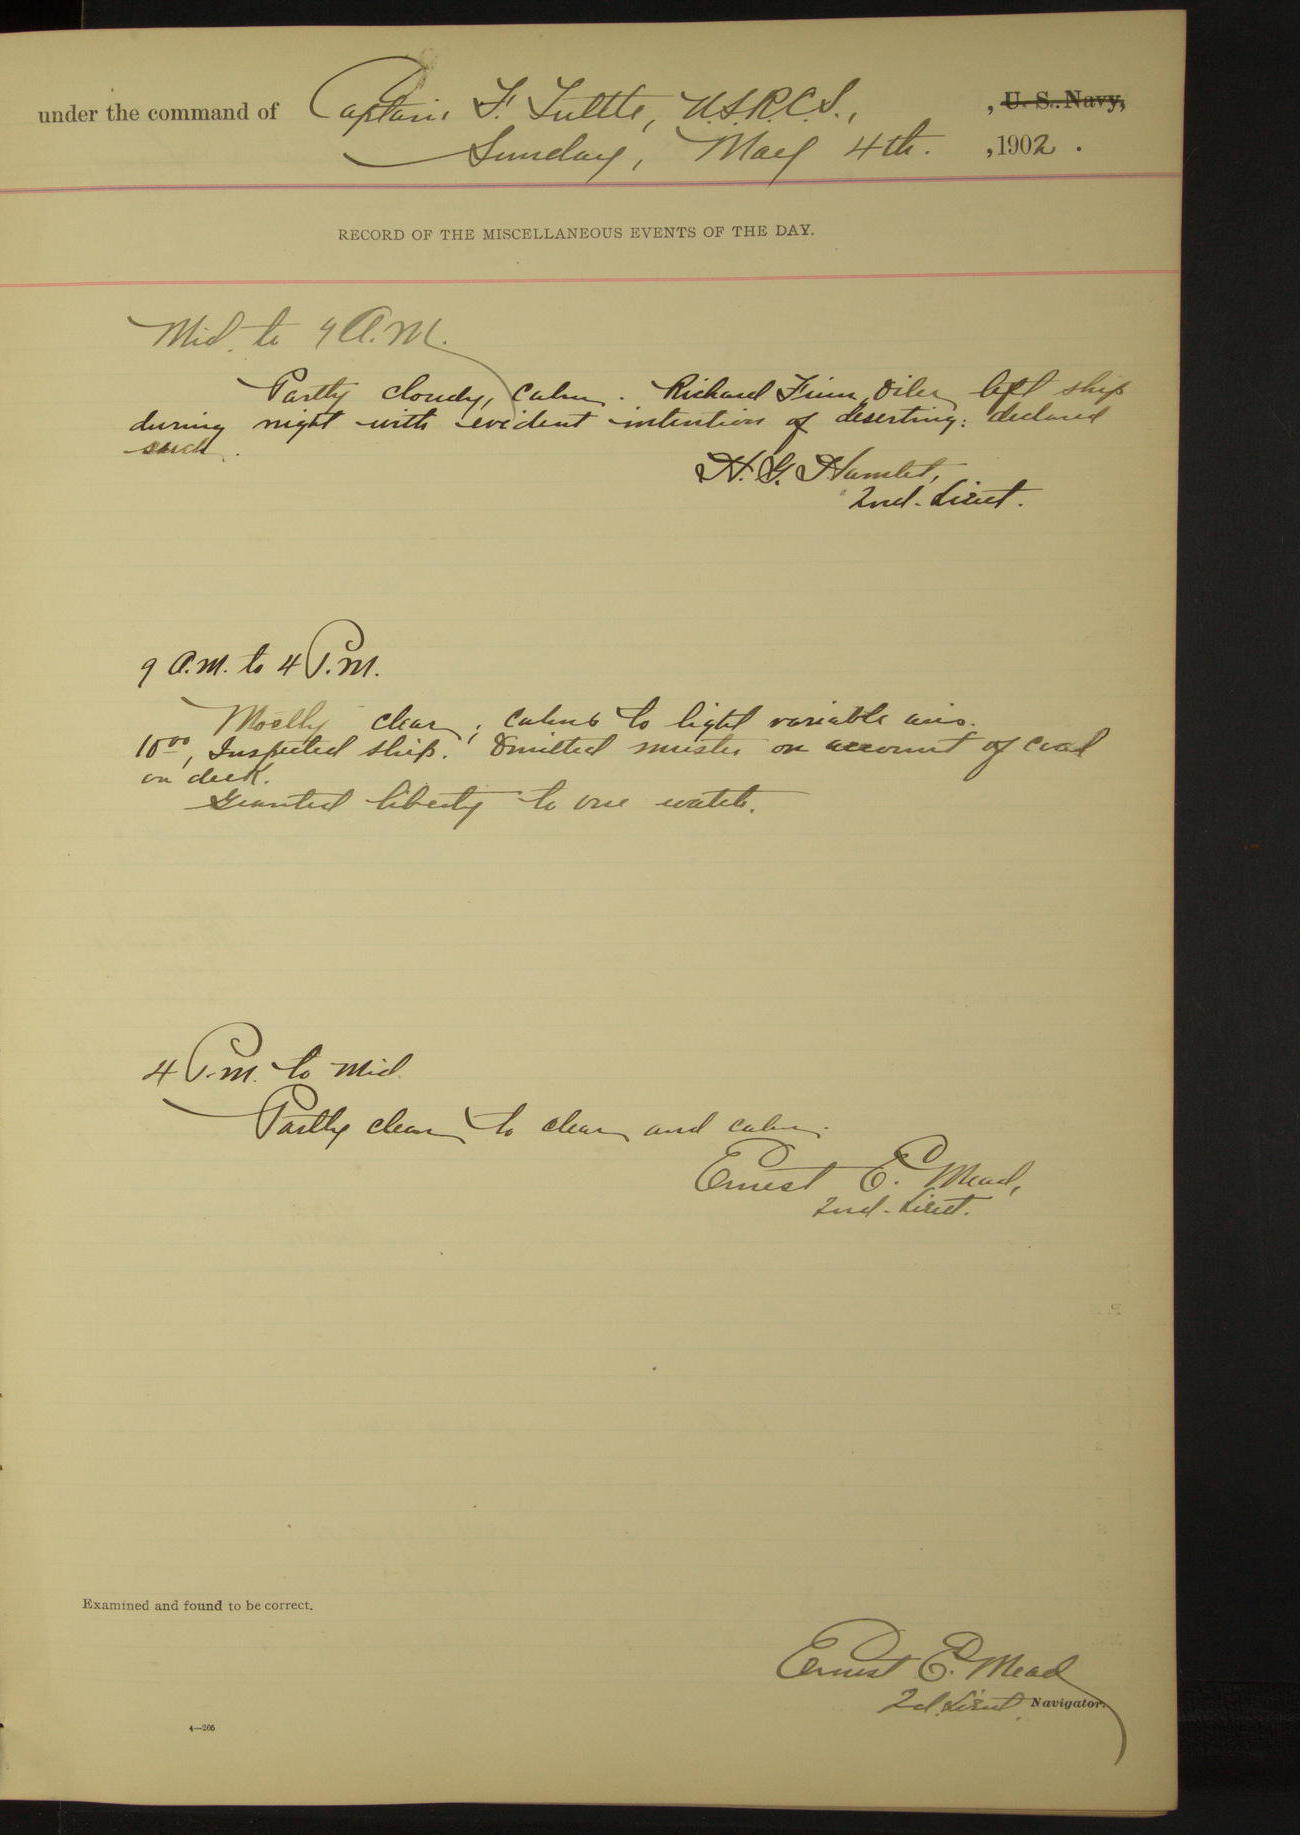 under the command of Captain F. Tuttle, U.S.R.C.S., , U. S. Navy,
Sunday, May 4th. , 1902.
RECORD OF THE MISCELLANEOUS EVENTS OF THE DAY.
Mid. to 9 A.M.
Partly cloudy, calm. Richard Finn, Oiler left ship
during night with evident intention of deserting: declared
such.
H. G. Hamlet,
2nd. Lieut.
9 A.M. to 4 P.M.
Mostly clear; calms to light variable airs.
10⁰⁰, Inspected ship. Omitted muster on account of coal
on deck.
Granted liberty to one watch.
4 P.M. to Mid.
Partly clear to clear and calm.
Ernest E. Mead,
2nd. Lieut.
Examined and found to be correct.
Ernest E. Mead
2d. Lieut. Navigator.
4—205